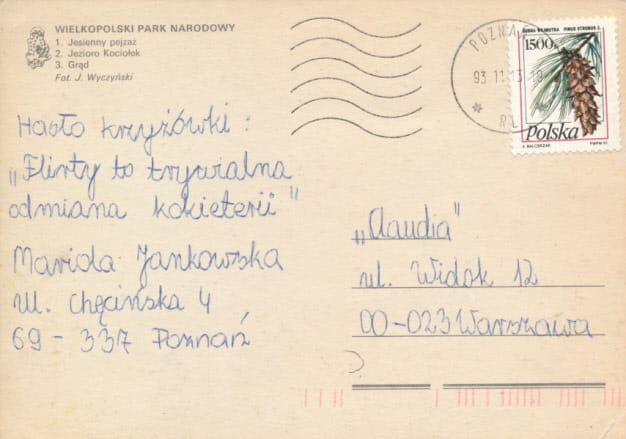 WIELKOPOLSKI PARK NARODOWY
1. Jesienny pejzaż
2. Jezioro Kociołek
3. Grąd
Fot. J. Wyczyński
Hasło krzyżówki:
„Flirty to trywialna
odmiana kokieterii"
Mariola Jankowska
ul. Chęcińska 4
69-337 Poznań
POZNAŃ
93 11.13.19
SOSNA WEJMUTKA PINUS STROBUS L.
1500
Polska
„Claudia"
ul. Widok 12
00-023 Warszawa